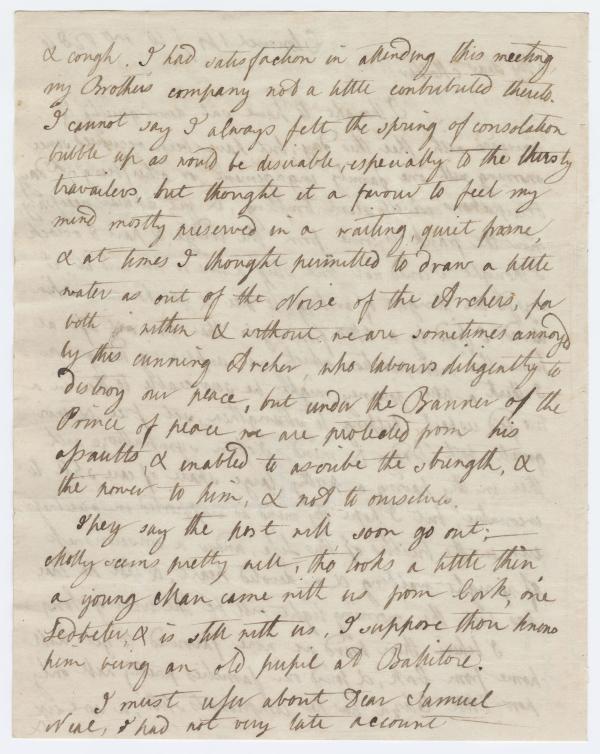 & cough. I had satisfaction in attending this meeting
my Brothers company not a little contributed thereto.
I cannot say I always felt the spring of consolation
bubble up as would be desirable, especially to the thirsty
travailers, but thought it a favour to feel my
mind mostly preserved in a waiting, quiet frame,
& at times I thought permitted to draw a little
water as out of the Noise of the Archers, for
both within & without we are sometimes annoyd
by this cunning Archer, who labours diligently to
destroy our peace, but under the Banner of the
Prince of peace we are protected from his
assaults, & enabled to ascribe the strength, &
the power to him, & not to ourselves.
They say the post will soon go out;—
Molly seems pretty well, tho looks a little thin
a young Man came with us from Cork, one
Leadbeter, & is still with us, I suppose thou knows
him being an old pupil at Balitore.
I must about Dear Samuel
Neal, I had not very late account